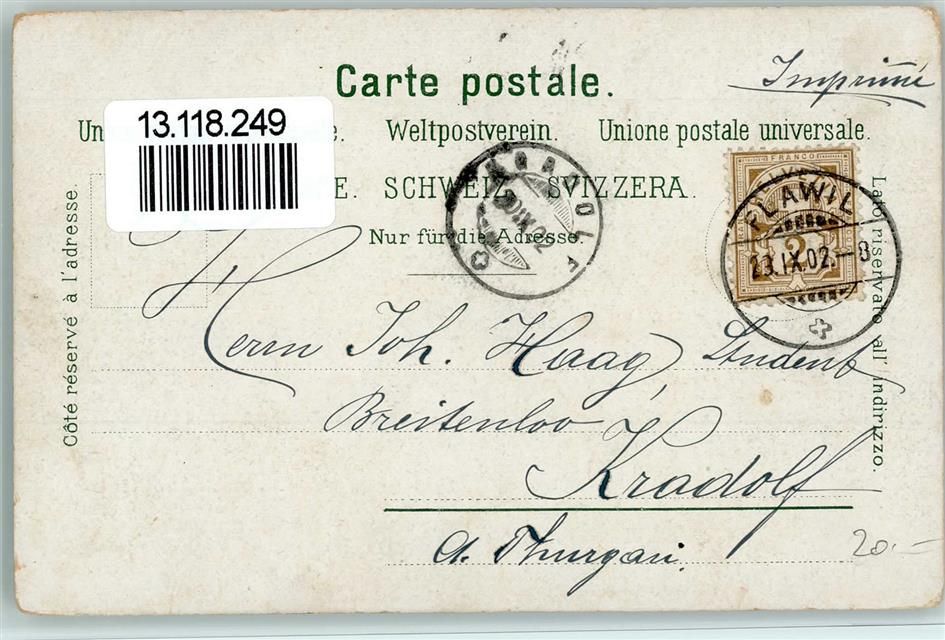 Carte postale.
Imprimé
13.118.249
Un e. Weltpostverein. Unione postale universale.
E. SCHWEIZ. SVIZZERA.
Nur für die Adresse.
KRADOLF
IX.02
FRANCO
HELVETIA
2
FLAWIL
23.IX.02.–8
Côté réservé à l'adresse.
Lato riservato all' indirizzo.
Herrn Joh. Haag, Student
Breitenloo
Kradolf
Ct. Thurgau.
20.–